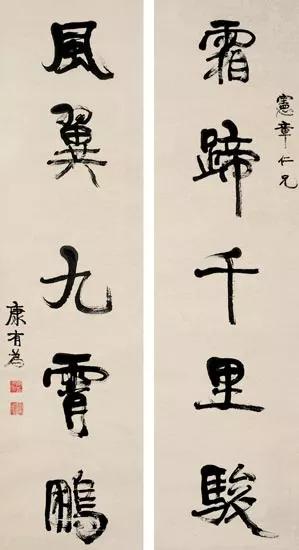 憲章仁兄
霜蹄千里駿
風翼九霄鵬
康有為